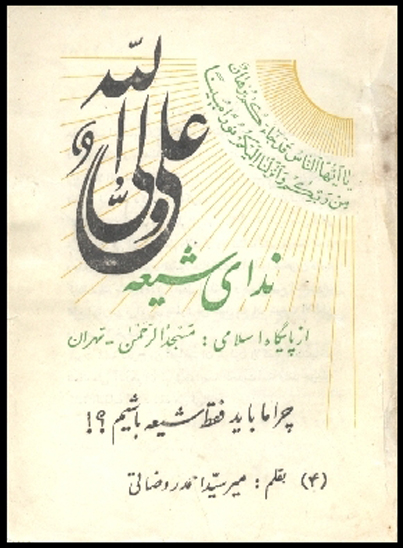 علی ولی الله
یا أَیُّهَا النّاسُ قَدْ جاءَکُمْ بُرْهانٌ
مِن رَبِّکُمْ وَأَنْزَلْنا إِلَیْکُمْ نُوراً مُبِیناً
ندای شیعه
از پایگاه اسلامی : مسجدالرحمن - تهران
چرا ما باید فقط شیعه باشیم ؟!
(۴) بقلم : میر سید احمد روضاتی